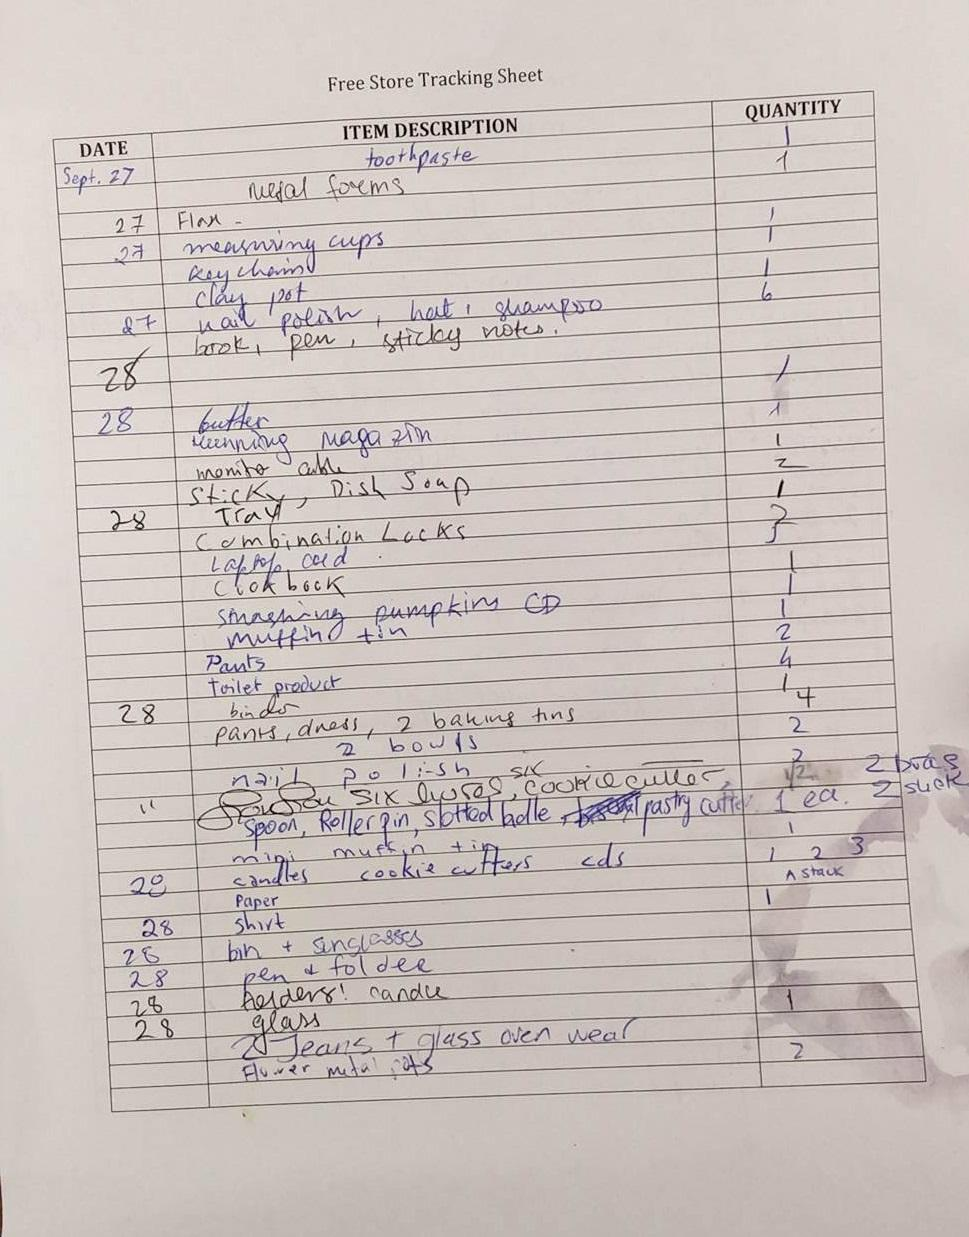 Free Store Tracking Sheet
DATE ITEM DESCRIPTION QUANTITY
Sept. 27 toothpaste 1
forems 1
27 Flax -
27 measuring cups 1
Keychain 1
Clay pot 1
27 nail polish, hat, shampoo 6
book, pen, sticky notes.
28
28 butter 1
magazin 1
monitor cable 1
Sticky, Dish Soap 2
28 Tray 1
Combination Locks
Laptop
Cookbook 1
Smashing pumpkins CD 1
muffin tin 1
Pants 2
toilet product 4
28 binder 1
pants, dress, 2 baking tins 4
2 bowls 2
nail polish
" six cookie cutter, 2 bras
Spoon, Roller pin, slotted ladle, pastry cutter 1 ea. 2 suck
mini muffin tin 1
28 candles cookie cutters cds 1 2 3
Paper A stack
28 Shirt 1
28 bin + sunglasses
28 pen + foldee
28 holders! candle
28 glass 1
2 Jeans + glass oven wear
Flower metal pots 2